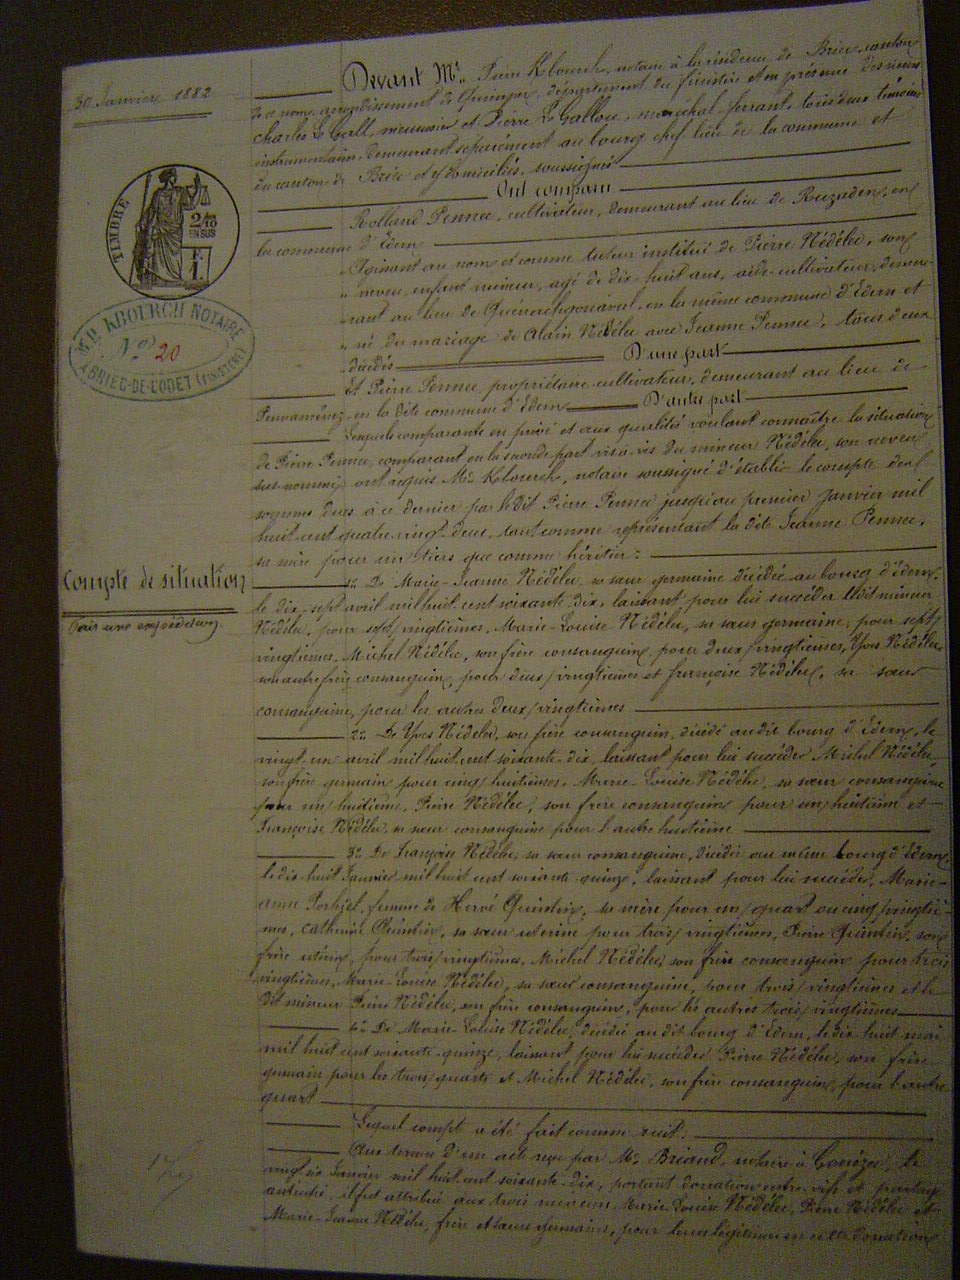 30 Janvier 1882
TIMBRE
2/10
EN SUS
F.
1.
M. P. KBOURCH NOTAIRE
N° 20
A BRIEC-DE-L'ODET (FINISTÈRE)
Compte de situation
Devant Me. Pierre Kbourch, notaire à la résidence de Briec, canton
de ce nom, arrondissement de Quimper, département du finistère et en présence des sieurs
Charles Le Gall, menuisier et Pierre Le Gallou, maréchal-ferrant, tous deux témoins
instrumentaires, demeurant séparément au bourg chef lieu de la commune et
du canton de Briec et y domiciliés, soussignés
Ont comparu
Rolland Pennec, cultivateur, demeurant au lieu de en
la commune d'Edern
Agissant au nom et comme tuteur institué de Pierre Nédélec, son
neveu, enfant mineur, agé de dix-huit ans, aide-cultivateur, demeu-
rant au lieu de en la même commune d'Edern et
né du mariage de Alain Nédélec avec Jeanne Pennec, tous deux
décédés
D'une part
Et Pierre Pennec, propriétaire-cultivateur, demeurant au lieu de
en la dite commune d'Edern D'autre part
Lesquels comparants en privé et aux qualités voulant connaître la situation
de Pierre Pennec, comparant en la seconde part vis à vis du mineur Nédélec, son neveu
sus-nommé ont requis Me. Kbourch, notaire soussigné d'établir le compte des
sommes dues à ce dernier par le dit Pierre Pennec jusqu'au premier janvier mil
huit cent quatre vingt deux, tant comme représentant la dite Jeanne Pennec,
sa mère pour un tiers que comme héritier:
1° De Marie-Jeanne Nédélec, sa sœur germaine décédée au bourg d'Edern,
le dix-sept avril mil huit cent soixante-dix, laissant pour lui succéder le dit mineur
Nédélec, pour sept vingtièmes, Marie-Louise Nédélec, sa sœur germaine, pour sept
vingtièmes, Michel Nédélec, son frère consanguin, pour deux vingtièmes, Yves Nédélec
son autre frère consanguin, pour deux vingtièmes et françoise Nédélec, sa sœur
consanguine, pour les autres deux vingtièmes
2° De Yves Nédélec, son frère consanguin, décédé au dit bourg d'Edern, le
vingt-un avril mil huit cent soixante-dix, laissant pour lui succéder Michel Nédélec
son frère germain pour cinq huitièmes, Marie-Louise Nédélec, sa sœur consanguine
pour un huitième, Pierre Nédélec, son frère consanguin pour un huitième et
Françoise Nédélec, sa sœur consanguine pour l'autre huitième
3° De Françoise Nédélec, sa sœur consanguine, décédée au même bourg d'Edern,
le dix huit Janvier mil huit cent soixante-quinze, laissant pour lui succéder, Marie-
anne femme de Hervé Quintin, sa mère pour un quart ou cinq vingtiè-
mes, Catherine Quintin, sa sœur utérine pour trois vingtièmes, Pierre Quintin, son
frère utérin, pour trois vingtièmes, Michel Nédélec, son frère consanguin pour trois
vingtièmes, Marie-Louise Nédélec, sa sœur consanguine, pour trois vingtièmes et le
dit mineur Pierre Nédélec, son frère consanguin, pour les autres trois vingtièmes
4° De Marie-Louise Nédélec, décédée au dit bourg d'Edern, le dix huit mai
mil huit cent soixante-quinze, laissant pour lui succéder Pierre Nédélec, son frère
germain pour les trois quarts et Michel Nédélec, son frère consanguin, pour l'autre
quart
Lequel compte a été fait comme suit:
Aux termes d'un acte reçu par Me. Briand, notaire à Gouézec, le
vingt six Janvier mil huit cent soixante-dix, portant donation entre vifs et partage
anticipé, il fut attribué aux trois mineurs Marie-Louise Nédélec, Pierre Nédélec et
Marie-Jeanne Nédélec, frère et sœurs germains, pour leurs légitimes en cette donation